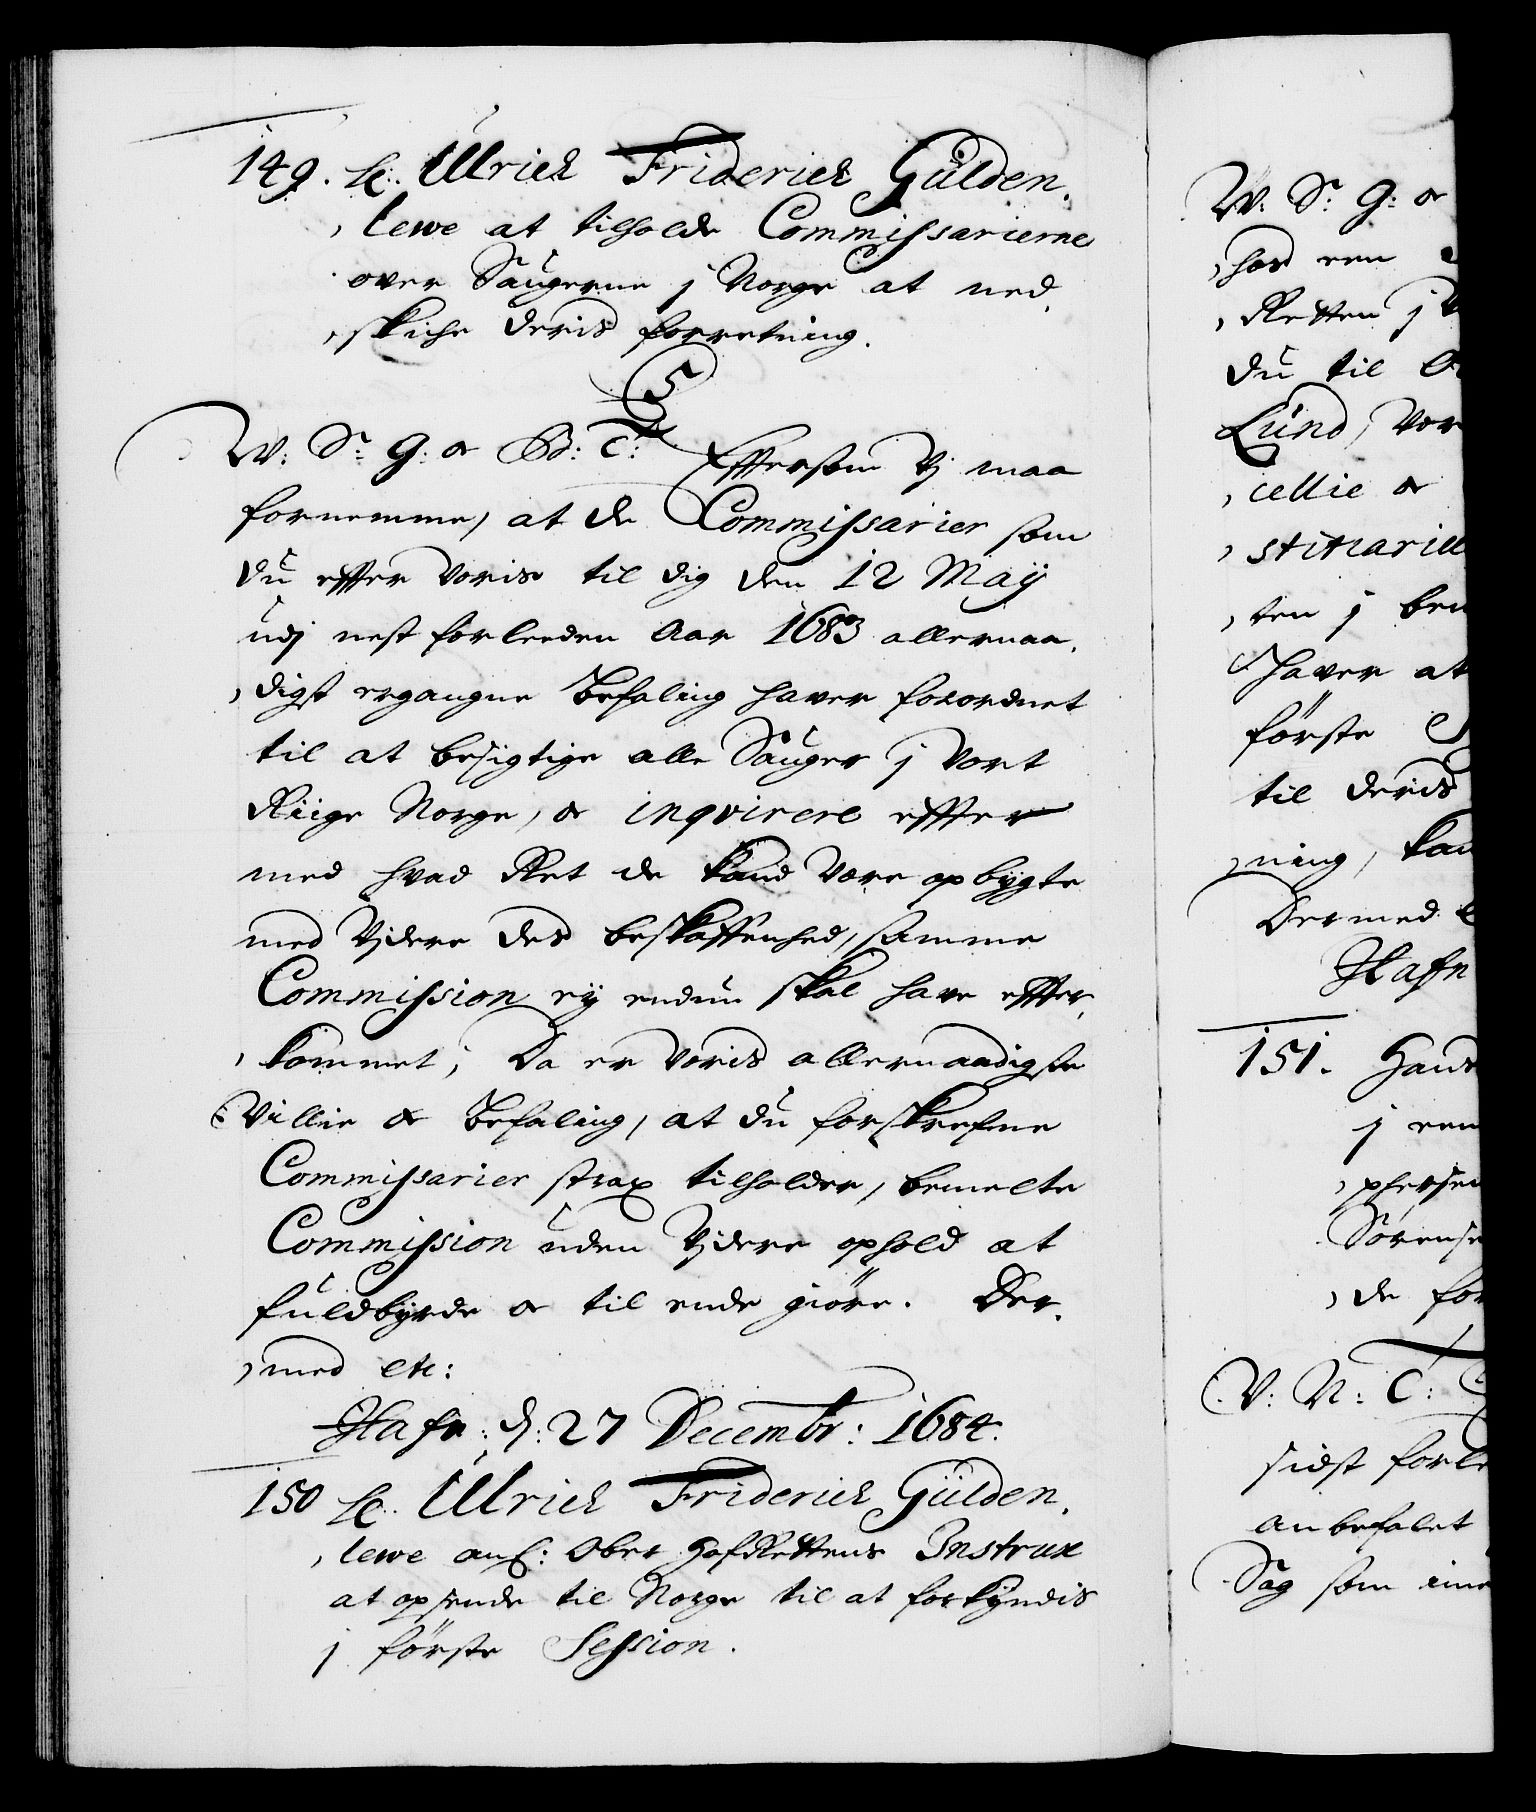 149. h. Ulrich Friderich Gülden,
, lewe at tilholde Commissarierne
over Saugerne j Norge at ned,
, skiche deris forretning.
5
W: Sr: G: or Bd: C: Efftersom Vj maa
fornemme, at de Commissarier som
du effter voris til dig den 12 Maÿ
udj nest forleeden Aar 1683 allernaa,
, digst ergangne Befaling haver forordnet
til at besigtige alle Sauger j vort
Riige Norge, or inqvirere effter
med hvad Ret de kand være opbygte
med Vjdere des beskaffenhed, samme
Commission ey endnu skal have effter,
, kommet; Da er voris allernaadigste
Villie or Befaling, at du forskrefne
Commissarier strax tilholder, bemelte
Commission uden Vjdere ophold at
fuldbyrde or til ende giöre. Der,
, med etc:
Hafn: d: 27 Decembr: 1684.
150 h. Ulrich Friderich Gülden,
, lewe anl: Ober HofRettens Instrux
at opsende til Norge til at forkyndis
j förste Session.
W: Sr: G: or
, hos een
, Retten j
du til
Lund, Vor
, cellie or
,
, ten j
haver at
förste
til deris
, ning,
Dermed
Hafn
151. Hans
j
,
Sörens
, de for
V: N: C:
sidst forle
anbefalet
Sag som